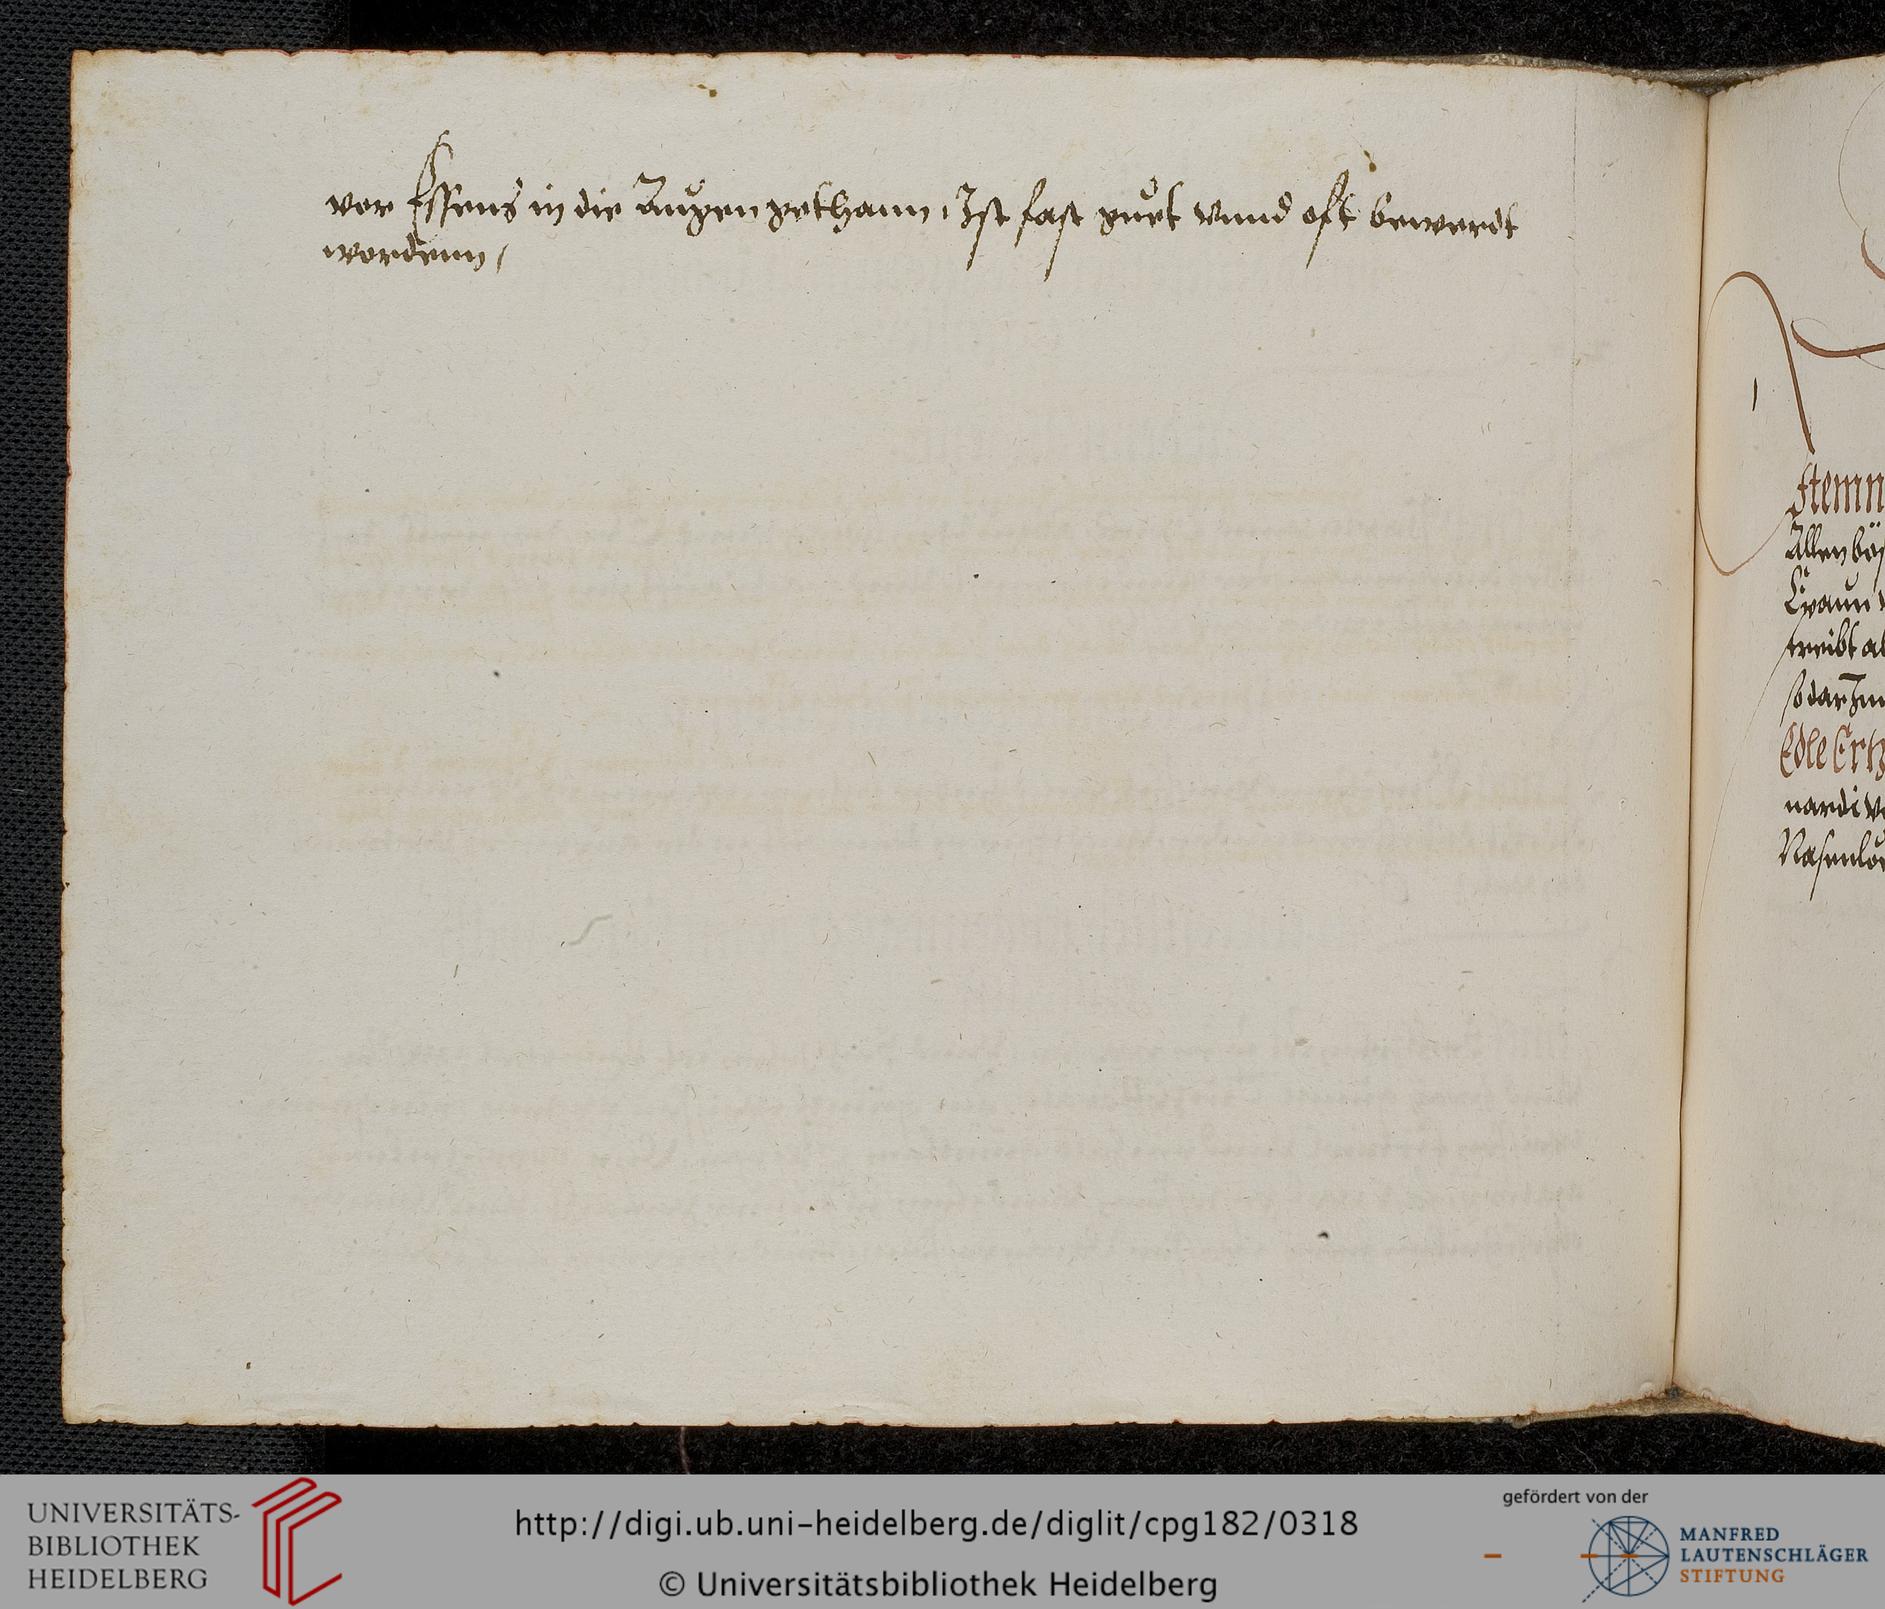 vor Essens in die Augen gethann, Ist fast guet vnnd oft bewerdt
wordenn /
Itemn
Allen bös
treibt al
so darzu
Edle Ertz
nardi vo
Nasenlöc
UNIVERSITÄTS-
BIBLIOTHEK
HEIDELBERG
http://digi.ub.uni-heidelberg.de/diglit/cpg182/0318
© Universitätsbibliothek Heidelberg
gefördert von der
MANFRED
LAUTENSCHLÄGER
STIFTUNG